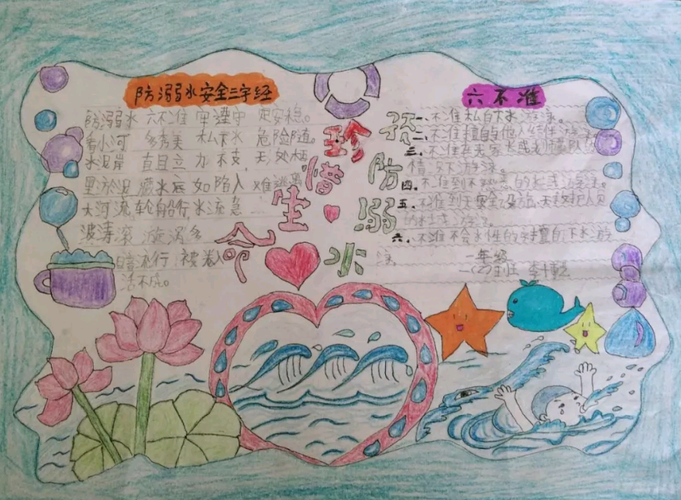 防溺水安全三字经
防溺水 六不准 牢遵守 定安稳。
看小河 多秀美 私下水 危险随。
水泥岸 直且立 力不支 无处
如陷入 难逃
大河流 轮船行 水流急
波涛滚 旋涡多
流行 被卷
活不成。
珍惜生命
预防溺水
六不准
一、不准私自下水游泳。
二、不准擅自与他人结伴游泳。
三、不准在无家长或老师带队的
情况下游泳。
四、不准到不熟悉的水域游泳。
五、不准到无安全设施、无救护人员
的水域游泳。
六、不准不会水性的擅自下水施
一年级